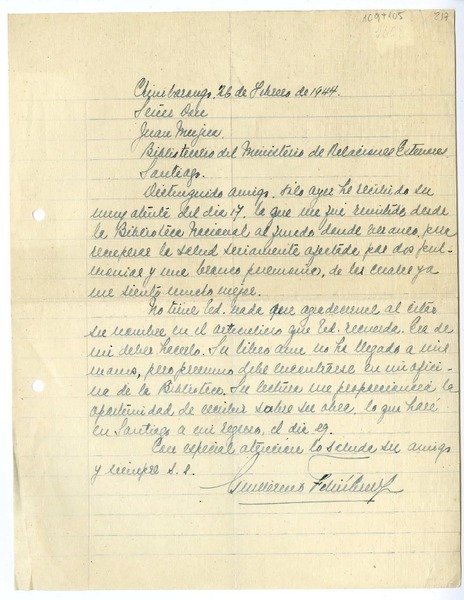 109405 217
Chimbarongo, 26 de Febrero de 1944.
Señor Don
Juan Mujica
Bibliotecario del Ministerio de Relaciones Exteriores
Santiago.
Distinguido amigo: Sólo ayer he recibido su
muy atenta del día 17, la que me fué remitida desde
la Biblioteca Nacional al fundo donde veraneo, para
recuperar la salud seriamente afectada por dos pul-
monias y una bronco pneumonia, de las cuales ya
me siento mucho mejor.
No tiene Ud. nada que agradecerme al citar
su nombre en el articulito que Ud. recuerda. Era de
mi deber hacerlo. Su libro aun no ha llegado a mis
manos, pero presumo debe encontrarse en mi ofici-
na de la Biblioteca. Su lectura me proporcionará la
oportunidad de escribir sobre su obra, lo que haré
en Santiago a mi regreso, el día 29.
Con especial atención lo saluda su amigo
y siempre s.s.
Guillermo Feliú Cruz